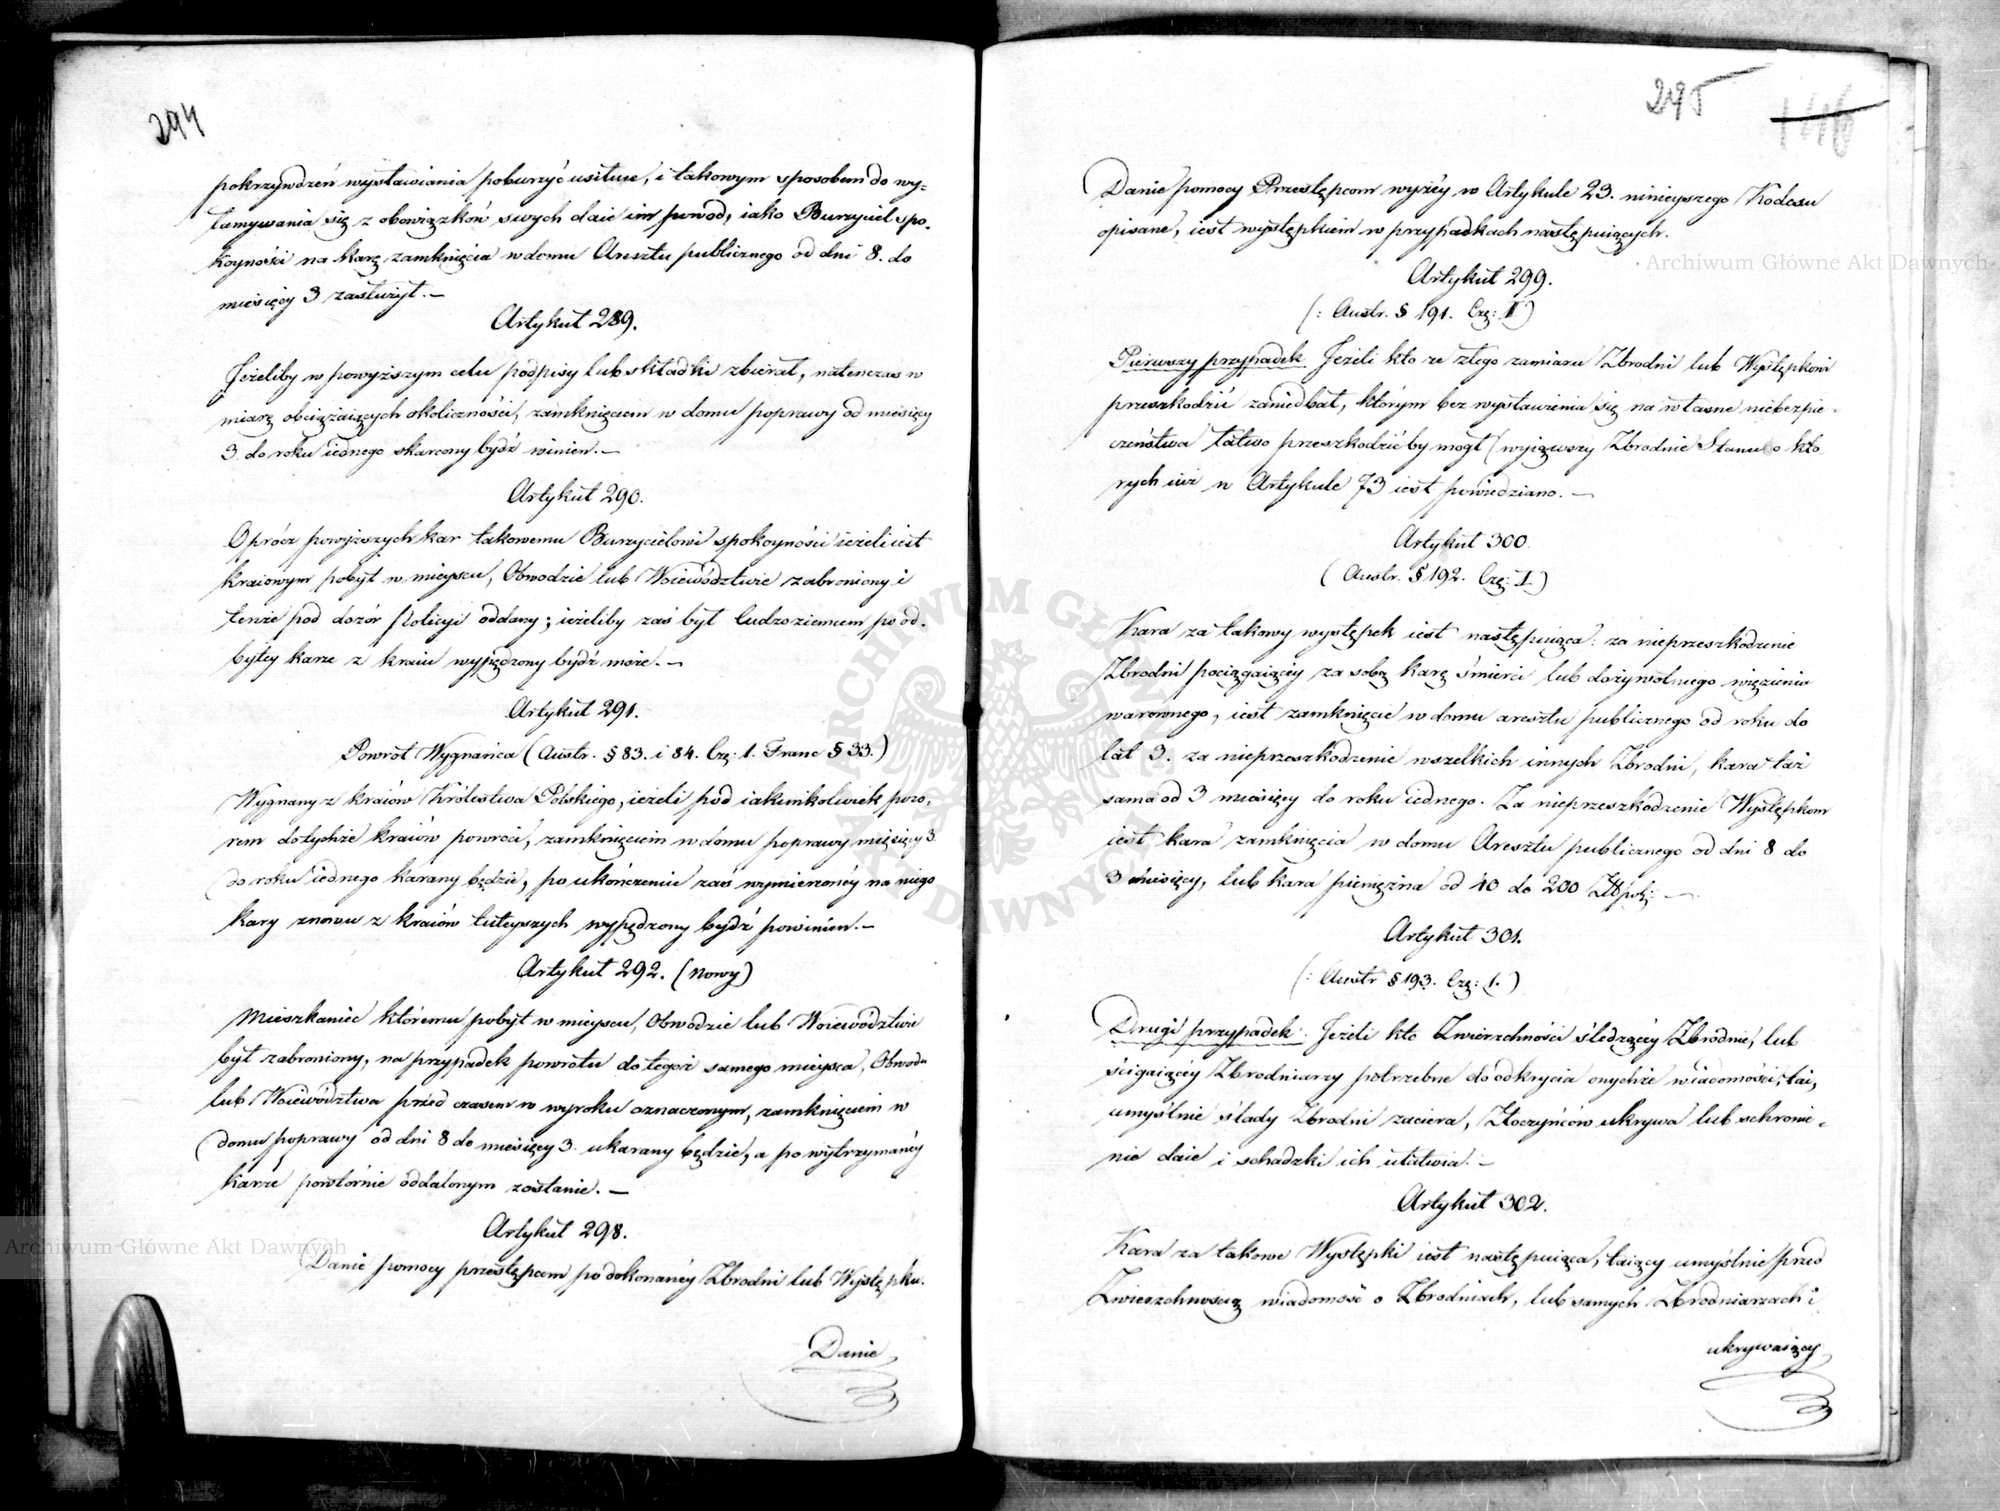 294
pokrzywdzeń wystawiania poburzyć usiłuie, i takowym sposobem do wy=
łamywania się z obowiązków swych daie im powod, iako Burzyciel spo.
koyności na karę zamknięcia w domu Aresztu publicznego od dni 8. do
miesięcy 3 zasłużył. —
Artykuł 289.
Jeżeliby w powyższym celu podpisy lub składki zbierał, natenczas w
miarę obciążaiących okoliczności, zamknięciem w domu poprawy od miesięcy
3. do roku iednego skarcony bydź winien. —
Artykuł 290.
Oprócz powyższych kar takowemu Burzycielowi spokoyności ieżeli iest
kraiowym pobyt w mieyscu, Obwodzie lub Woiewództwie zabroniony i
tenże pod dozór Policyi oddany; ieżeliby zaś był Cudzoziemcem po od.
bytey karze z kraiu wypędzony bydź może. —
Artykuł 291.
Powrót Wygnańca (Austr. § 83. i 84. Czę: 1. Franc § 33.)
Wygnany z kraiów Królestwa Polskiego, ieżeli pod iakimkolwiek pozo,
rem do tychże kraiów powróci, zamknięciem w domu poprawy miesięcy 3.
do roku iednego karany będzie, po ukończeniu zaś wymierzonéy na niego
kary znowu z kraiów tuteyszych wypędzony bydź powinien. —
Artykuł 292. (nowy)
Mieszkaniec któremu pobyt w mieyscu, Obwodzie lub Woiewództwie
był zabroniony, na przypadek powrotu do tegoż samego mieysca, Obwodu
lub Woiewództwa przed czasem w wyroku oznaczonym, zamknięciem w
domu poprawy od dni 8 do miesięcy 3. ukarany będzie, a po wytrzymanéy
karze powtórnie oddalonym zostanie. —
Artykuł 298.
Danie pomocy przestępcom po dokonanéy Zbrodni lub Występku.
Danie
295
Danie pomocy Przestępcom wyżéy w Artykule 23. ninieyszego Kodexu
opisane, iest występkiem w przypadkach następuiących.
Artykuł 299.
(: Austr. § 191. Czę: I)
Pierwszy przypadek. Jeżeli kto ze złego zamiaru Zbrodni lub Występkowi
przeszkodzić zaniedbał, którym bez wystawienia się na własne niebezpie.
czeństwa łatwo przeszkodzić by mógł (wyiąwszy Zbrodnie Stanu o któ
rych iuż w Artykule 73 iest powiedziano. —
Artykuł 300.
(Austr. § 192. Czę: I.)
Kara za takowy występek iest następuiąca: za nieprzeszkodzenie
Zbrodni pociągaiącéy za sobą karę śmierci lub dożywotniego więzienia
warownego, iest zamknięcie w domu aresztu publicznego od roku do
lat 3. za nieprzeszkodzenie wszelkich innych Zbrodni, kara taż
sama od 3 miesięcy do roku iednego. Za nieprzeszkodzenie Występkom
iest kara zamknięcia w domu Aresztu publicznego od dni 8 do
3 miesięcy, lub kara pieniężna od 40 do 200 Złłpol: —
Artykuł 301.
(: Austr § 193. Czę: 1.)
Drugi przypadek. Jeżeli kto Zwierzchności śledzącéy Zbrodnie, lub
ścigaiącéy Zbrodniarzy potrzebne do odkrycia onychże wiadomości, tai,
umyślnie ślady Zbrodni zaciera, Złoczyńców ukrywa lub schronie.
nie daie i schadzki ich ułatwia. —
Artykuł 302.
Kara za takowe Występki iest następuiąca, taiący umyślnie przed
Zwierzchnością wiadomość o Zbrodniach, lub samych Zbrodniarzach i
ukrywaiący
Archiwum Główne Akt Dawnych
Archiwum Główne Akt Dawnych
ARCHIWUM GŁÓWNE AKT DAWNYCH